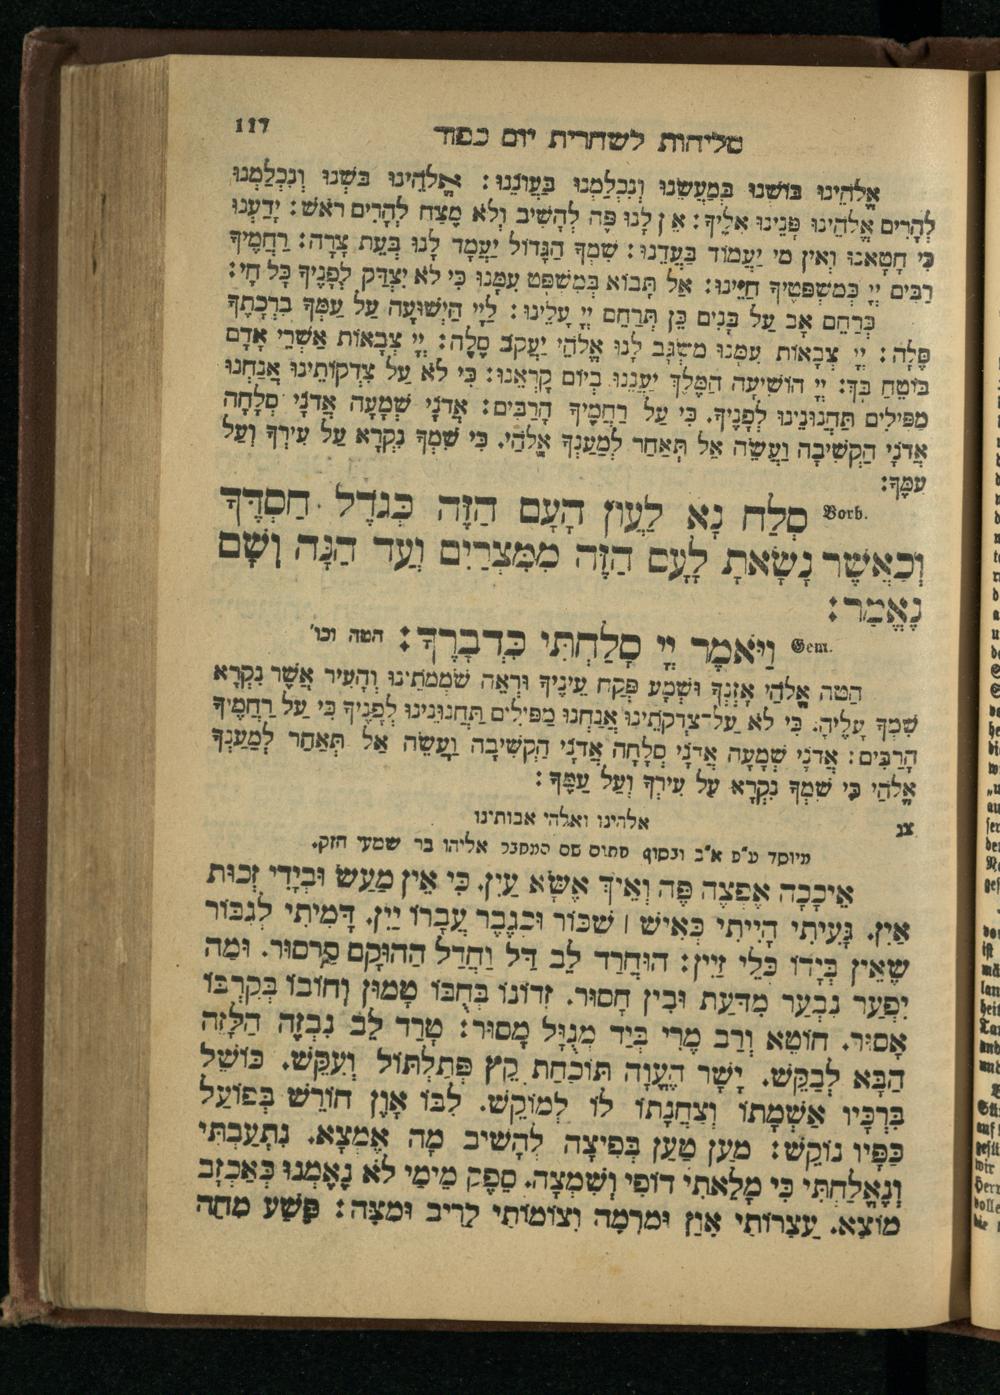 סליחות לשחרית יום כפור 117
אֱלֹהֵינוּ בּוֹשְׁנוּ בְּמַעֲשֵׂנוּ וְנִכְלַמְנוּ בַּעֲוֹנֵנוּ: אֱלֹהֵינוּ בֹּשְׁנוּ וְנִכְלַמְנוּ
לְהָרִים אֱלֹהֵינוּ פָּנֵינוּ אֵלֶיךָ: אֵין לָנוּ פֶּה לְהָשִׁיב וְלֹא מֵצַח לְהָרִים רֹאשׁ: יָדַעְנוּ
כִּי חָטָאנוּ וְאֵין מִי יַעֲמוֹד בַּעֲדֵנוּ: שִׁמְךָ הַגָּדוֹל יַעֲמָד לָנוּ בְּעֵת צָרָה: רַחֲמֶיךָ
רַבִּים יְיָ כְּמִשְׁפָּטֶיךָ חַיֵּינוּ: אַל תָּבוֹא בְמִשְׁפָּט עִמָּנוּ כִּי לֹא יִצְדַּק לְפָנֶיךָ כָּל חָי:
כְּרַחֵם אָב עַל בָּנִים כֵּן תְּרַחֵם יְיָ עָלֵינוּ: לַיְיָ הַיְשׁוּעָה עַל עַמְּךָ בִרְכָתֶךָ
סֶּלָה: יְיָ צְבָאוֹת עִמָּנוּ מִשְׂגָּב לָנוּ אֱלֹהֵי יַעֲקֹב סֶלָה: יְיָ צְבָאוֹת אַשְׁרֵי אָדָם
בּוֹטֵחַ בָּךְ: יְיָ הוֹשִׁיעָה הַמֶּלֶךְ יַעֲנֵנוּ בְיוֹם קָרְאֵנוּ: כִּי לֹא עַל צִדְקוֹתֵינוּ אֲנַחְנוּ
מַפִּילִים תַּחֲנוּנֵינוּ לְפָנֶיךָ. כִּי עַל רַחֲמֶיךָ הָרַבִּים: אֲדֹנָי שְׁמָעָה אֲדֹנָי סְלָחָה
אֲדֹנָי הַקְשִׁיבָה וַעֲשֵׂה אַל תְּאַחַר לְמַעַנְךָ אֱלֹהַי. כִּי שִׁמְךָ נִקְרָא עַל עִירְךָ וְעַל
עַמֶּךָ:
Vorb. סְלַח נָא לַעֲוֹן הָעָם הַזֶּה כְּגֹדֶל חַסְדֶּךָ
וְכַאֲשֶׁר נָשָׂאתָ לָעָם הַזֶּה מִמִּצְרַיִם וְעַד הֵנָּה וְשָׁם
נֶאֱמַר:
Gem. וַיֹּאמֶר יְיָ סָלַחְתִּי כִּדְבָרֶךָ: הטה וכו'
הַטֵּה אֱלֹהַי אָזְנְךָ וּשְׁמָע פְּקַח עֵינֶיךָ וּרְאֵה שֹׁמְמֹתֵינוּ וְהָעִיר אֲשֶׁר נִקְרָא
שִׁמְךָ עָלֶיהָ: כִּי לֹא עַל־צִדְקֹתֵינוּ אֲנַחְנוּ מַפִּילִים תַּחֲנוּנֵינוּ לְפָנֶיךָ כִּי עַל רַחֲמֶיךָ
הָרַבִּים: אֲדֹנָי שְׁמָעָה אֲדֹנָי סְלָחָה אֲדֹנָי הַקְשִׁיבָה וַעֲשֵׂה אַל תְּאַחַר לְמַעַנְךָ
אֱלֹהַי כִּי שִׁמְךָ נִקְרָא עַל עִירְךָ וְעַל עַמֶּךָ:
צג אלהינו ואלהי אבותינו
מיוסד ע"פ א"ב ובסוף חתום שם המחבר אליהו בר שמעי' חזק.
אֵיכָכָה אֶפְצֶה פֶּה וְאֵיךְ אֶשָּׂא עַיִן. כִּי אֵין מַעַשׂ וּבְיָדִי זְכוּת
אַיִן. נָעִיתִי הָיִיתִי כְּאִישׁ | שִׁכּוֹר וּכְגֶבֶר עֲבָרוֹ יָיִן. דָּמִיתִי לְגִבּוֹר
שֶׁאֵין בְּיָדוֹ כְּלֵי זָיִין: הוּחֲרַד לֵב דַּל וְחָדַל הַהוּקָם סַרְסוּר. וּמַה
יִפְעַר נִבְעַר מִדַּעַת וּבִין חָסוּר. זְדוֹנוֹ בְּחֻבּוֹ טָמוּן וְחוֹבוֹ בְּקִרְבּוֹ
אָסוּר. חוֹטֵא וְרַב מֶרִי בְּיַד מְנֻוָּל מָסוּר: טָרַד לֵב נִבְזֶה הַלָּזֶה
הַבָּא לְבַקֵּשׁ. יָשָׁר הֶעֱוָה תּוֹכַחַת קָץ פְּתַלְתּוֹל וְעִקֵּשׁ. כּוֹשֵׁל
בִּרְכָּיו אַשְׁמָתוֹ וְצַחֲנָתוֹ לוֹ לְמוֹקֵשׁ. לִבּוֹ אָוֶן חוֹרֵשׁ בְּפוֹעַל
כַּפָּיו נוֹקֵשׁ: מַעַן טַעַן בְּפִיצָה לְהָשִׁיב מָה אֶמְצָא. נִתְעַבְתִּי
וְנֶאֱלַחְתִּי כִּי מָלֵאתִי דוֹפִי וְשִׁמְצָה. סַפֶּק מֵימַי לֹא נֶאֶמְנוּ כְּאַכְזָב
מוֹצָא. עַצְרוֹתַי אָוֶן וּמִרְמָה וְצוֹמוֹתַי לְרִיב וּמַצָּה: פֶּשַׁע מְחֵה